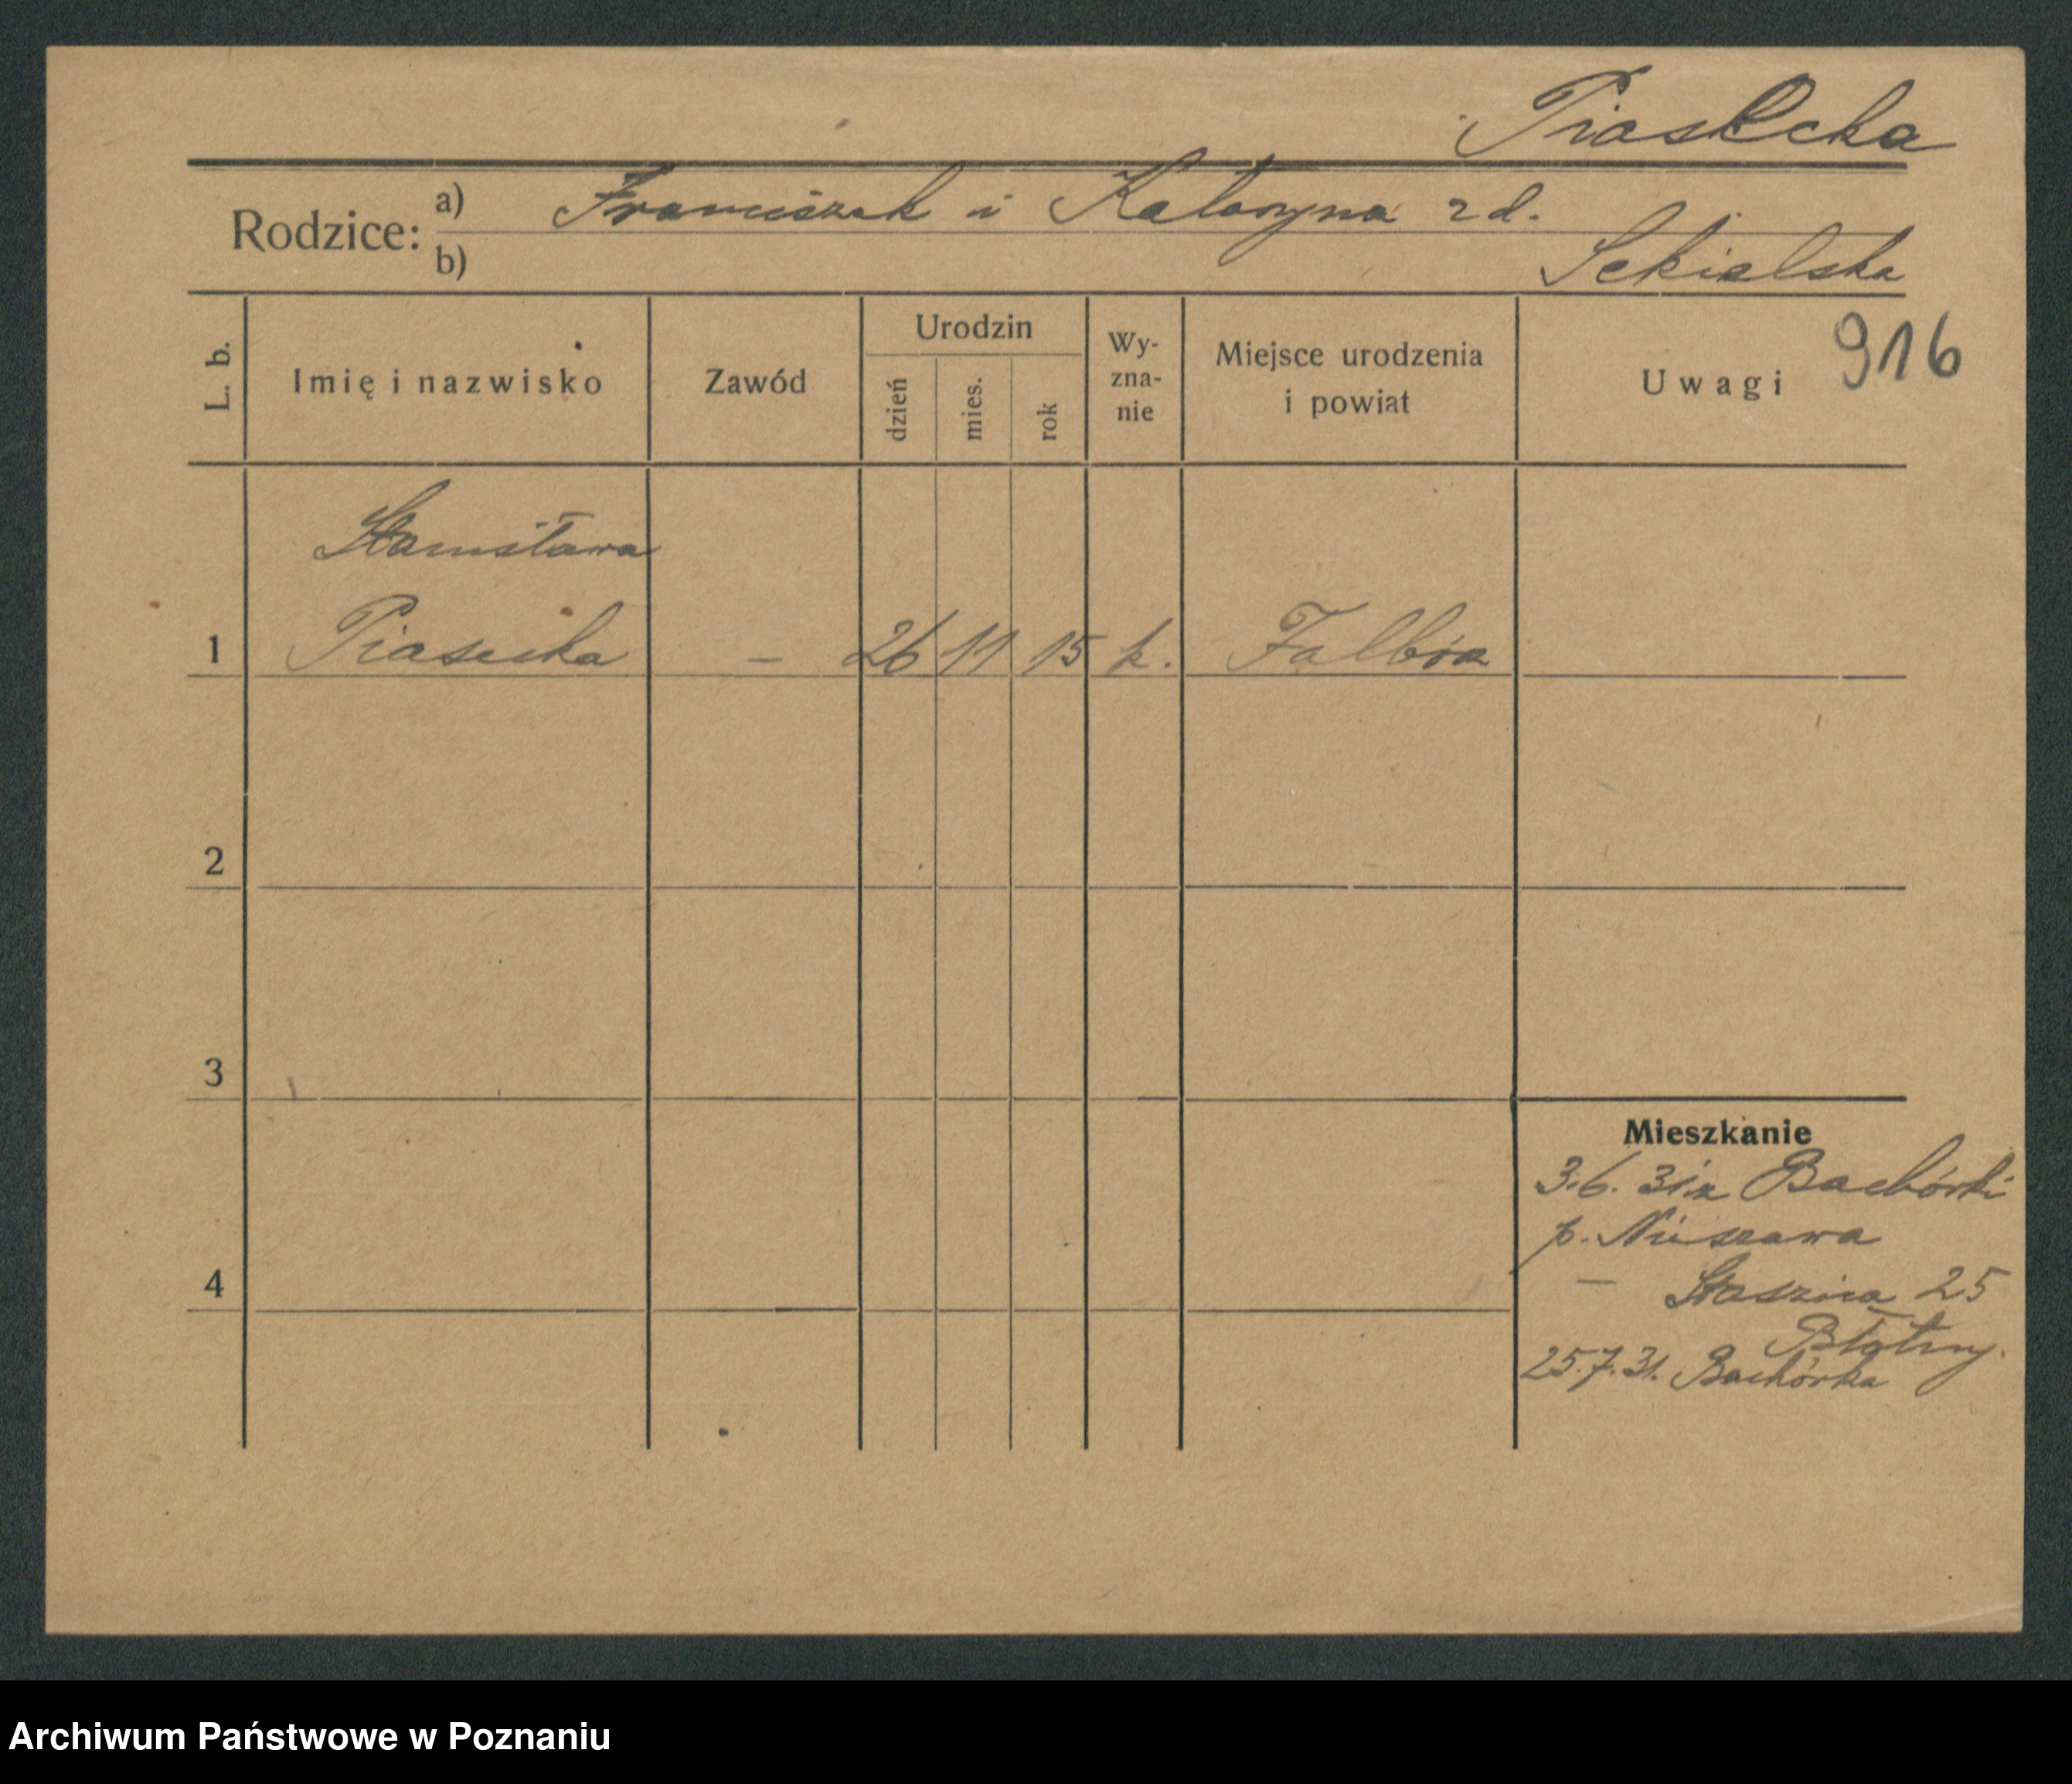 Piasecka
Rodzice: a) Franciszek i Katarzyna z d.
b) Sekielska
916
L. b. Imię i nazwisko Zawód Urodzin dzień mies. rok Wy-zna-nie Miejsce urodzenia i powiat Uwagi
Stanisława
1 Piasecka – 26 11 15 k. Falbórz
2
3
Mieszkanie
3.6.31 z Bachórki
p. Nieszawa
4 – Staszica 25
25.7.31. Bachórka
Archiwum Państwowe w Poznaniu